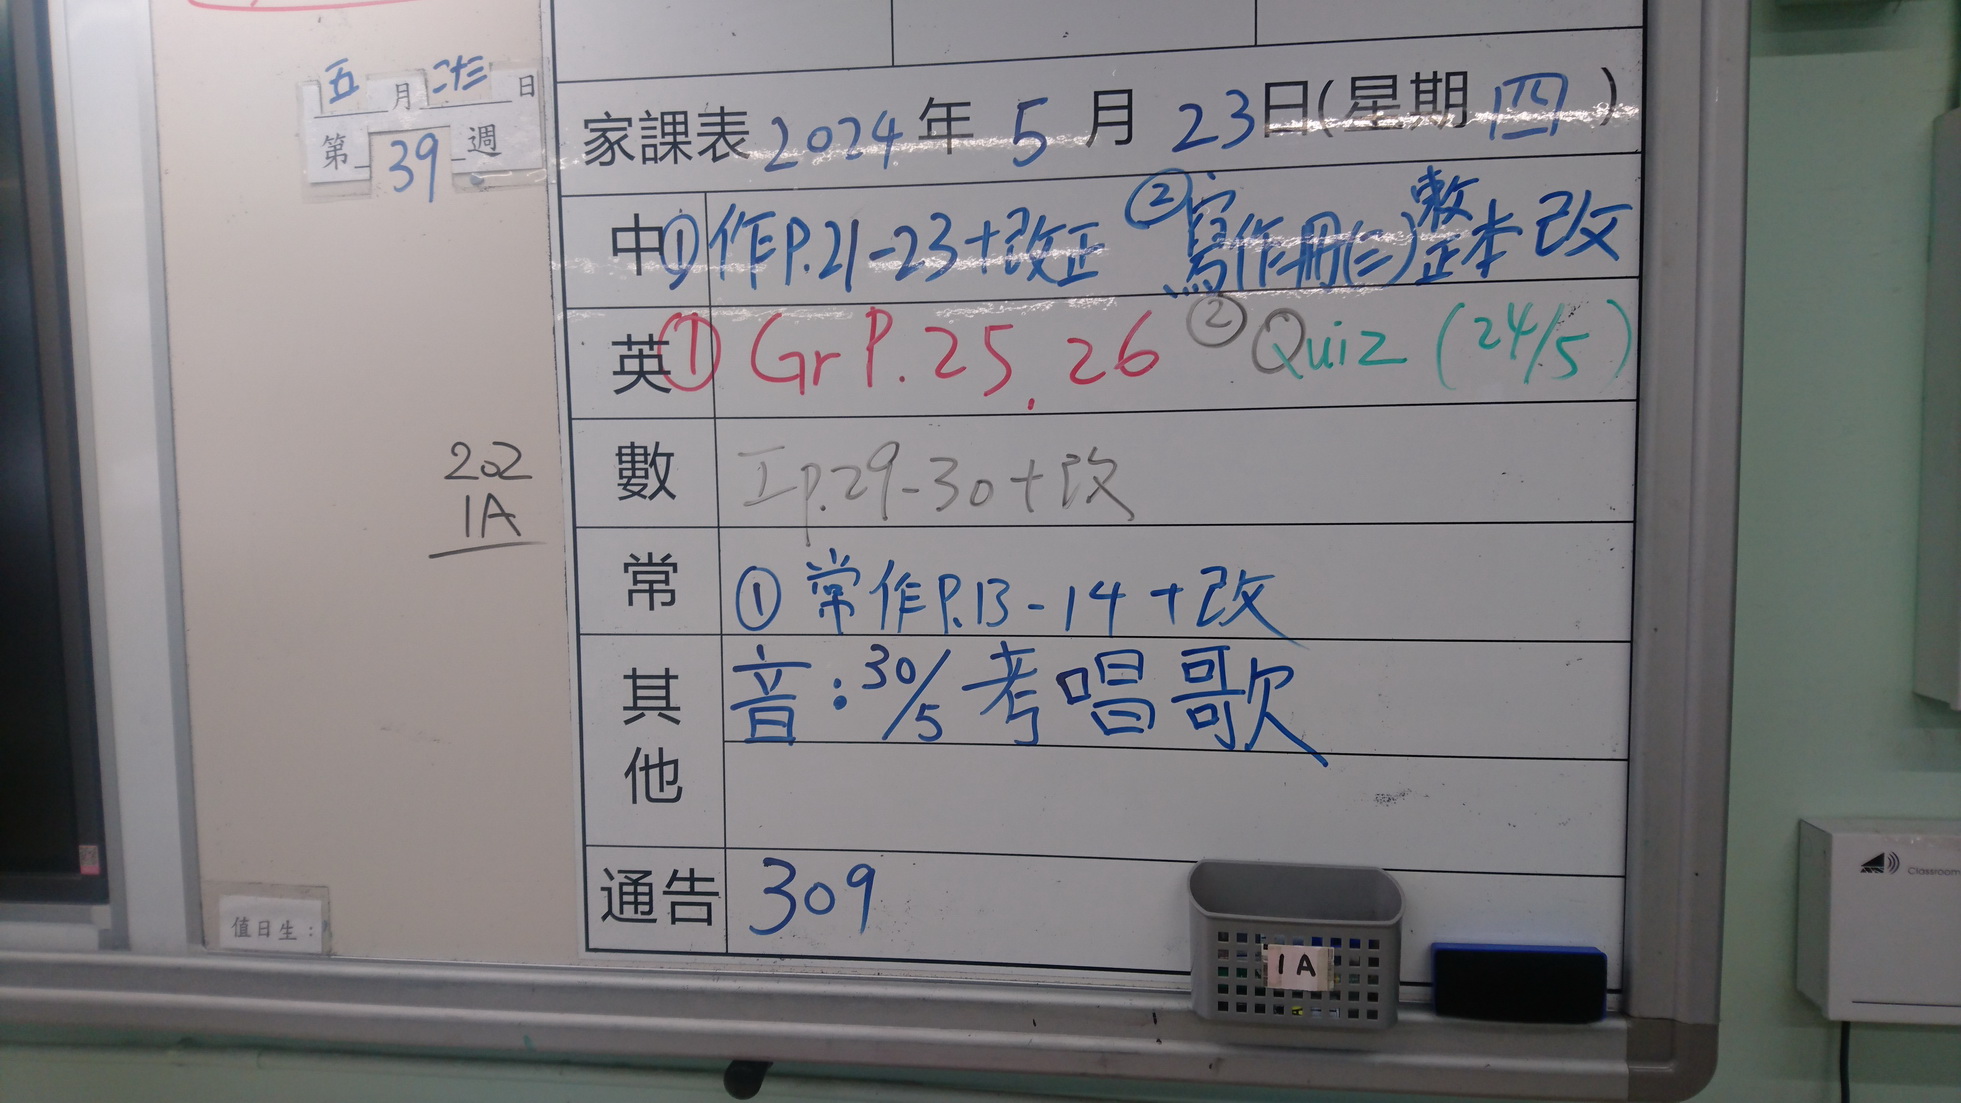 五月二十三日
第39週
家課表 2024年5月23日(星期四)
中 ①作P.21-23+改正 ②寫作冊(二)整本改
英 ①Gr P.25,26 ②Quiz (24/5)
數 工p.29-30+改
常 ①常作P.13-14+改
其他 音:30/5考唱歌
通告 309
202
1A
值日生:
1A
Classroom